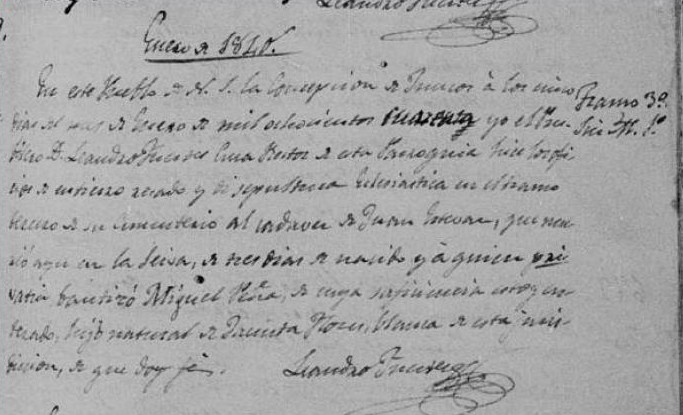 Leandro Fuentes
Enero de 1840.
En este Pueblo de N. S. la Concepcion de Juncos à los cinco
dias del mes de Enero de mil ochocientos cuarenta yo el Pres-
bitero D. Leandro Fuentes Cura Rector de esta Parroquia hice los ofi-
cios de entierro resado y di sepultura Eclesiastica en el tramo
tercero de su Cementerio al cadaver de Juan Estevan, que mu-
rió ayer en la de tres dias de nacido y à quien pri-
vatim bautizó Miguel Peña, de cuya suficiencia estoy en-
terado, hijo natural de Jacinta Flores, blanca de esta juris-
diccion, de que doy fe.
Leandro Fuentes
Tramo 3º.